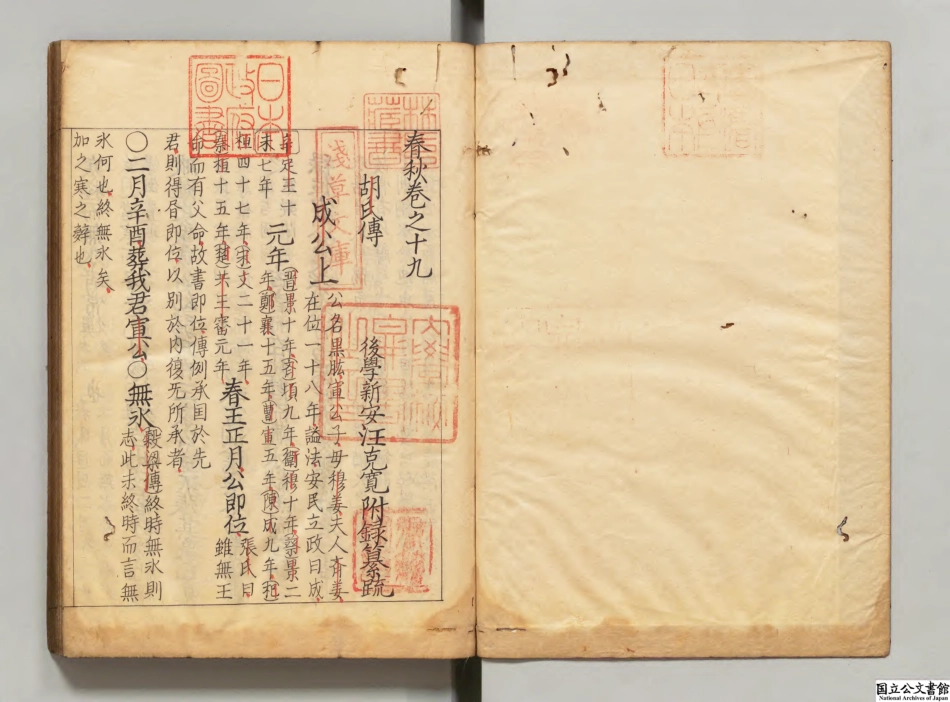 春秋卷之十九
胡氏傳　後學新安汪克寬附録纂疏
成公上
公名黒肱宣公子母穆姜夫人斉姜
在位一十八年謚法安民立政曰成
辛定王十
未七年
元年
晋景十年斉頃九年衛穆十年蔡景二
年鄭襄十五年曹宣五年陳成九年杞
桓四十七年宋文二十一年
秦桓十五年楚共王審元年
春王正月公即位
張氏曰
雖無王
命而有父命故書即位傳例承国於先
君則得昏即位以別於内復无所承者
〇二月辛酉葬我君宣公〇無氷
穀梁傳終時無氷則
志此未終時而言無
氷何也終無氷矣
加之寒之辞也
日本政府圖書
林氏藏書
淺草文庫
国立公文書館
National Archives of Japan